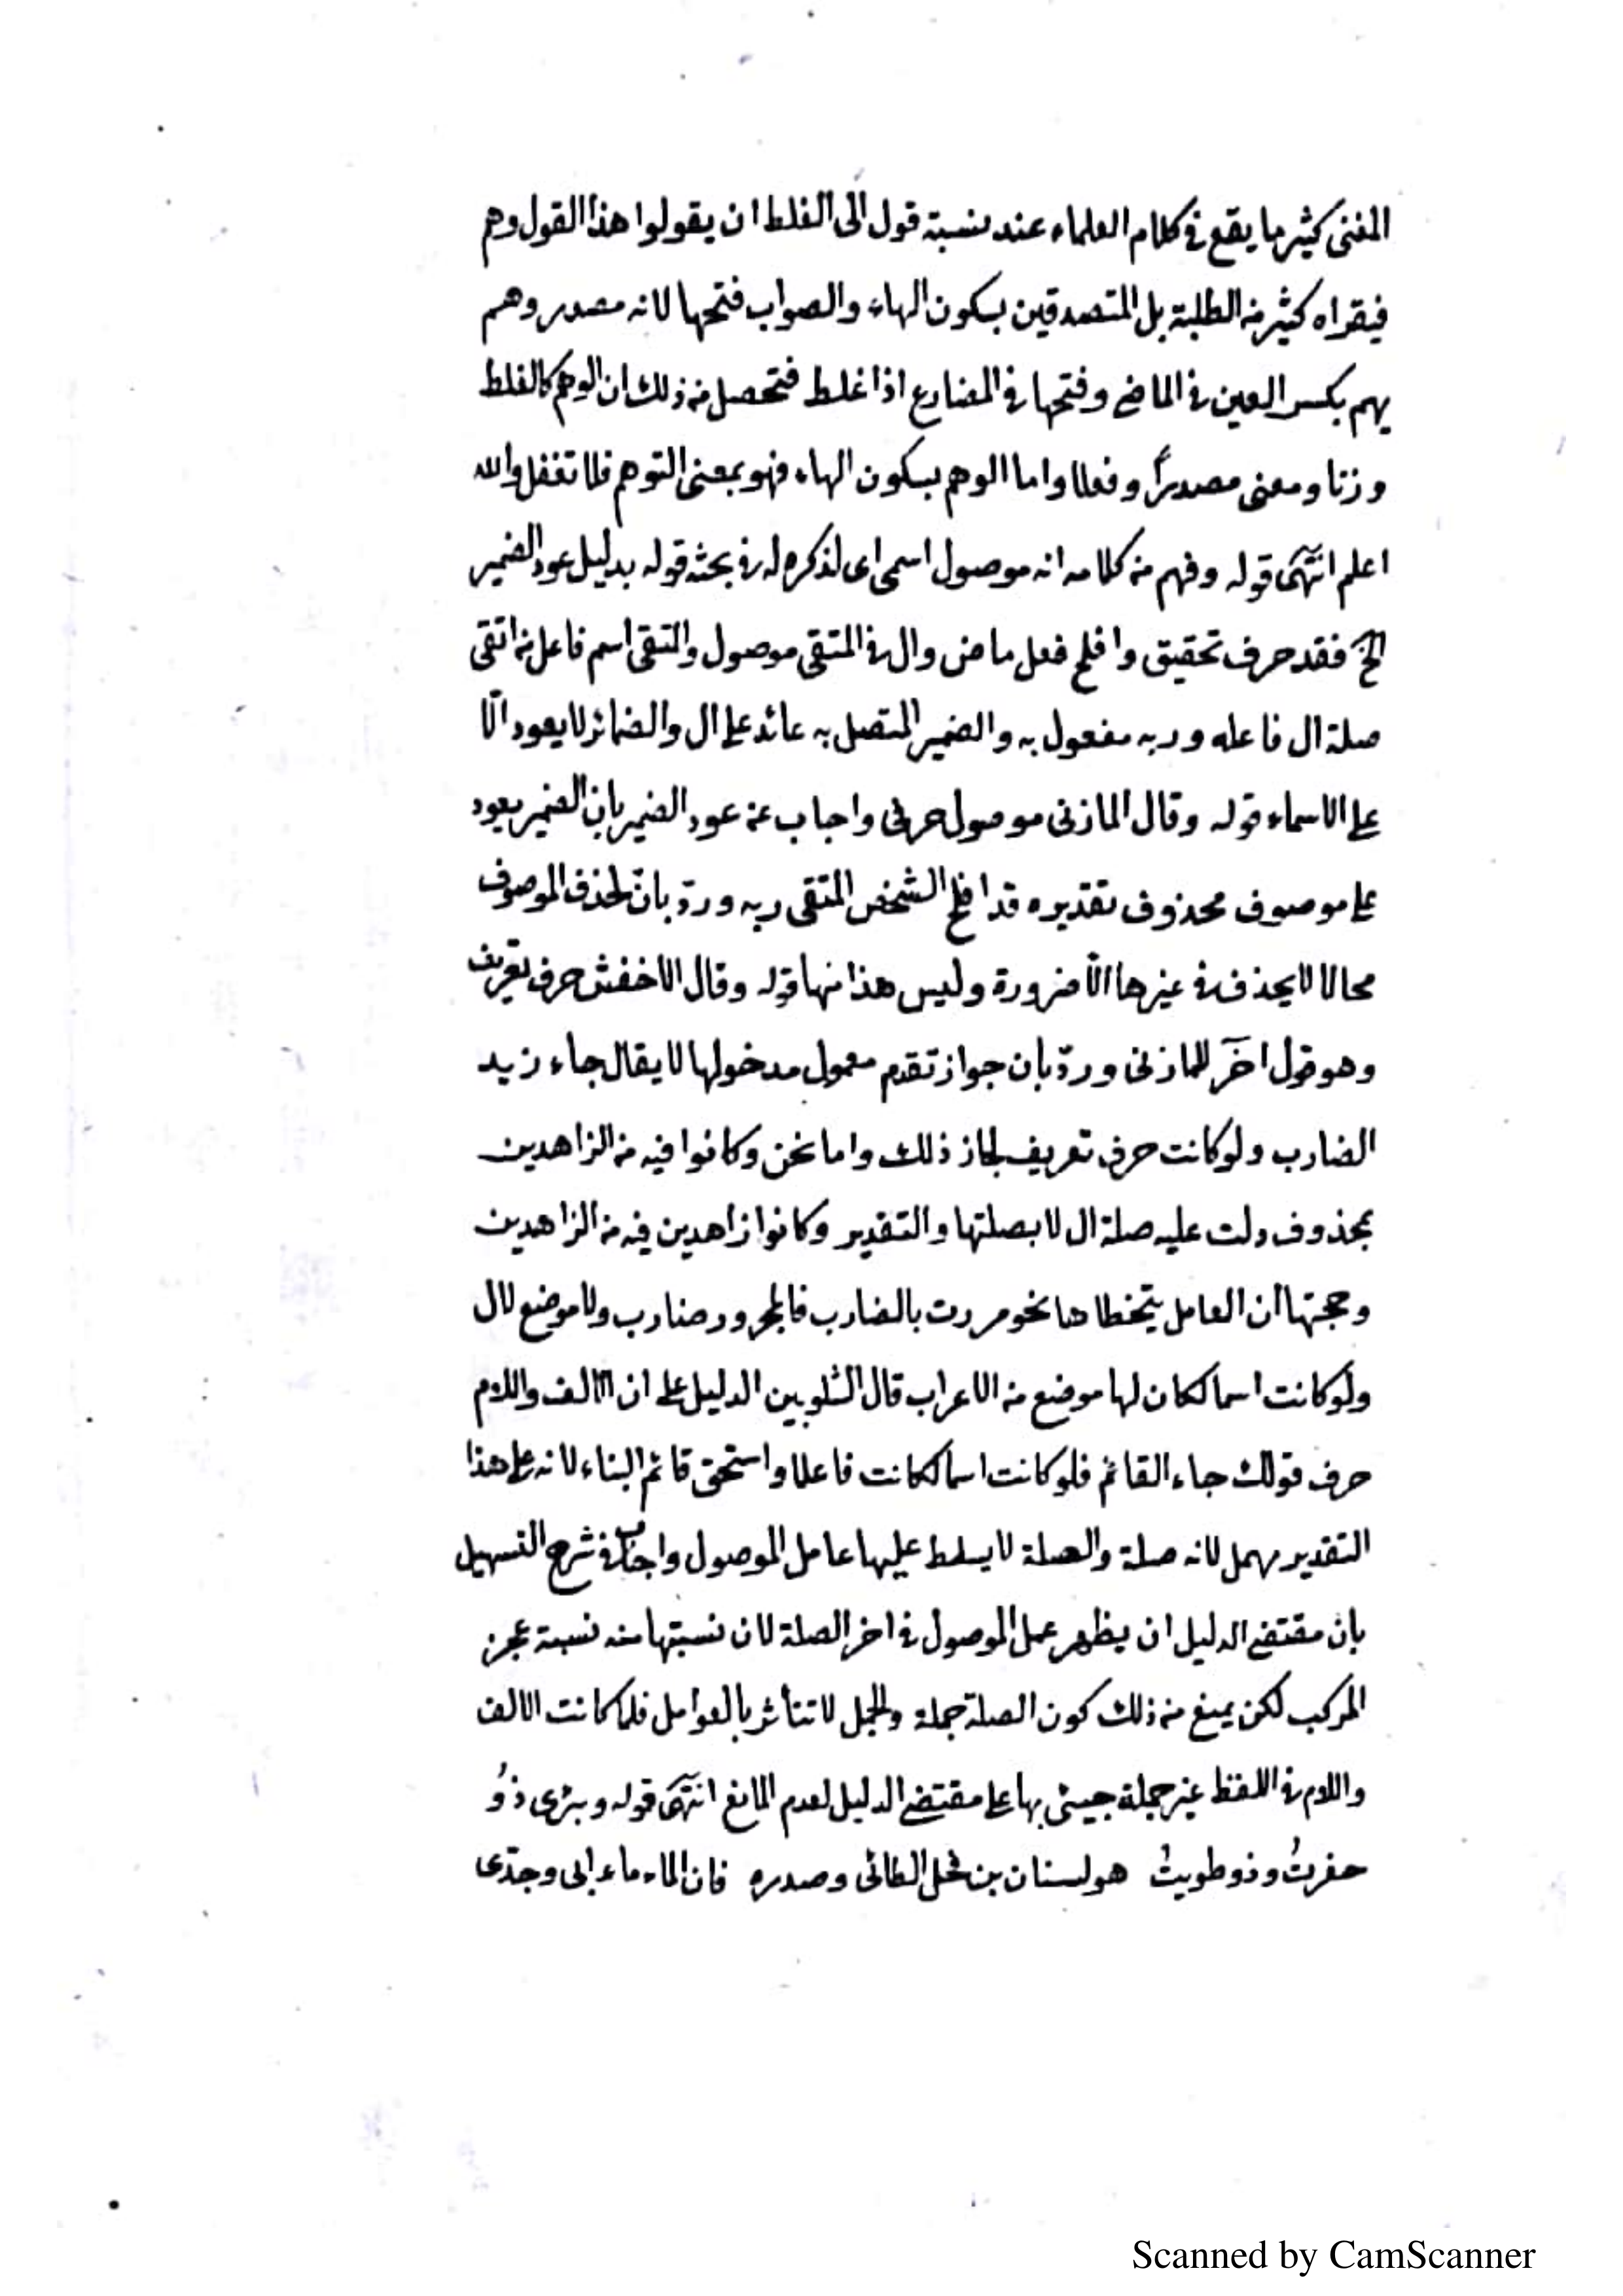 المغنى كثير ما يقع فى كلام العلماء عند نسبة قول الى الغلط ان يقولوا هذا القول وهم
فيقراه كثير من الطلبة بل المتصدقين بسكون الهاء والصواب فتحها لانه مصدر وهم
يهم بكسر العين فى الماضى وفتحها فى المضارع اذا غلط فتحصل من ذلك ان الوهم كالغلط
وزنا ومعنى مصدرًا وفعلا واما الوهم بسكون الهاء فهو بمعنى التوهم فلا تغفل والله
اعلم انتهى قوله وفهم من كلامه انه موصول اسمى اى لذكره له فى بحثه قوله بدليل عود الضمير
الخ فقد حرف تحقيق وافلح فعل ماض وال فى المتقى موصول والمتقى اسم فاعل من اتقى
صلة ال فاعله وربه مفعول به والضمير المتصل به عائد على ال والضمائر لا يعود الّا
على الاسماء قوله وقال المازنى موصول حرفى واجاب عن عود الضمير بان الضمير يعود
على موصوف محذوف تقديره قد افلح الشخص المتقى ربه وردّ بانّ لحذف الموصوف
محالا لا يحذف فى غيرها الّا ضرورة وليس هذا منها قوله وقال الاخفش حرف تعريف
وهو قول اخَر للمازنى وردّ بان جواز تقدم معمول مدخولها لا يقال جاء زيد
الضارب ولو كانت حرف تعريف لجاز ذلك واما نحن وكانوا فيه من الزاهدين
بمحذوف دلت عليه صلة ال لا بصلتها والتقدير وكانوا زاهدين فيه من الزاهدين
وحجتها أن العامل يتخطاها نحو مررت بالضارب فالمجرور ضارب ولا موضع لال
ولو كانت اسما لكان لها موضع من الاعراب قال الشلوبين الدليل على ان الالف واللام
حرف قولك جاء القائم فلو كانت اسما لكانت فاعلا واستحق قائم البناء لانه على هذا
التقدير مهمل لانه صلة والصلة لا يسلط عليها عامل الموصول واجاب فى شرح التسهيل
بان مقتضى الدليل ان يظهر عمل الموصول فى اخر الصلة لان نسبتها منه نسبة عجز
المركب لكن يمنع من ذلك كون الصلة جملة والجمل لا تتأثر بالعوامل فلما كانت الالف
واللام فى اللفظ غير جملة جيئ بها على مقتضى الدليل لعدم المانع انتهى قوله وبئرى ذوُ
حفرتُ وذو طويتُ هو لسنان بن فحل الطائى وصدره فان الماء ماء ابى وجدّى
Scanned by CamScanner